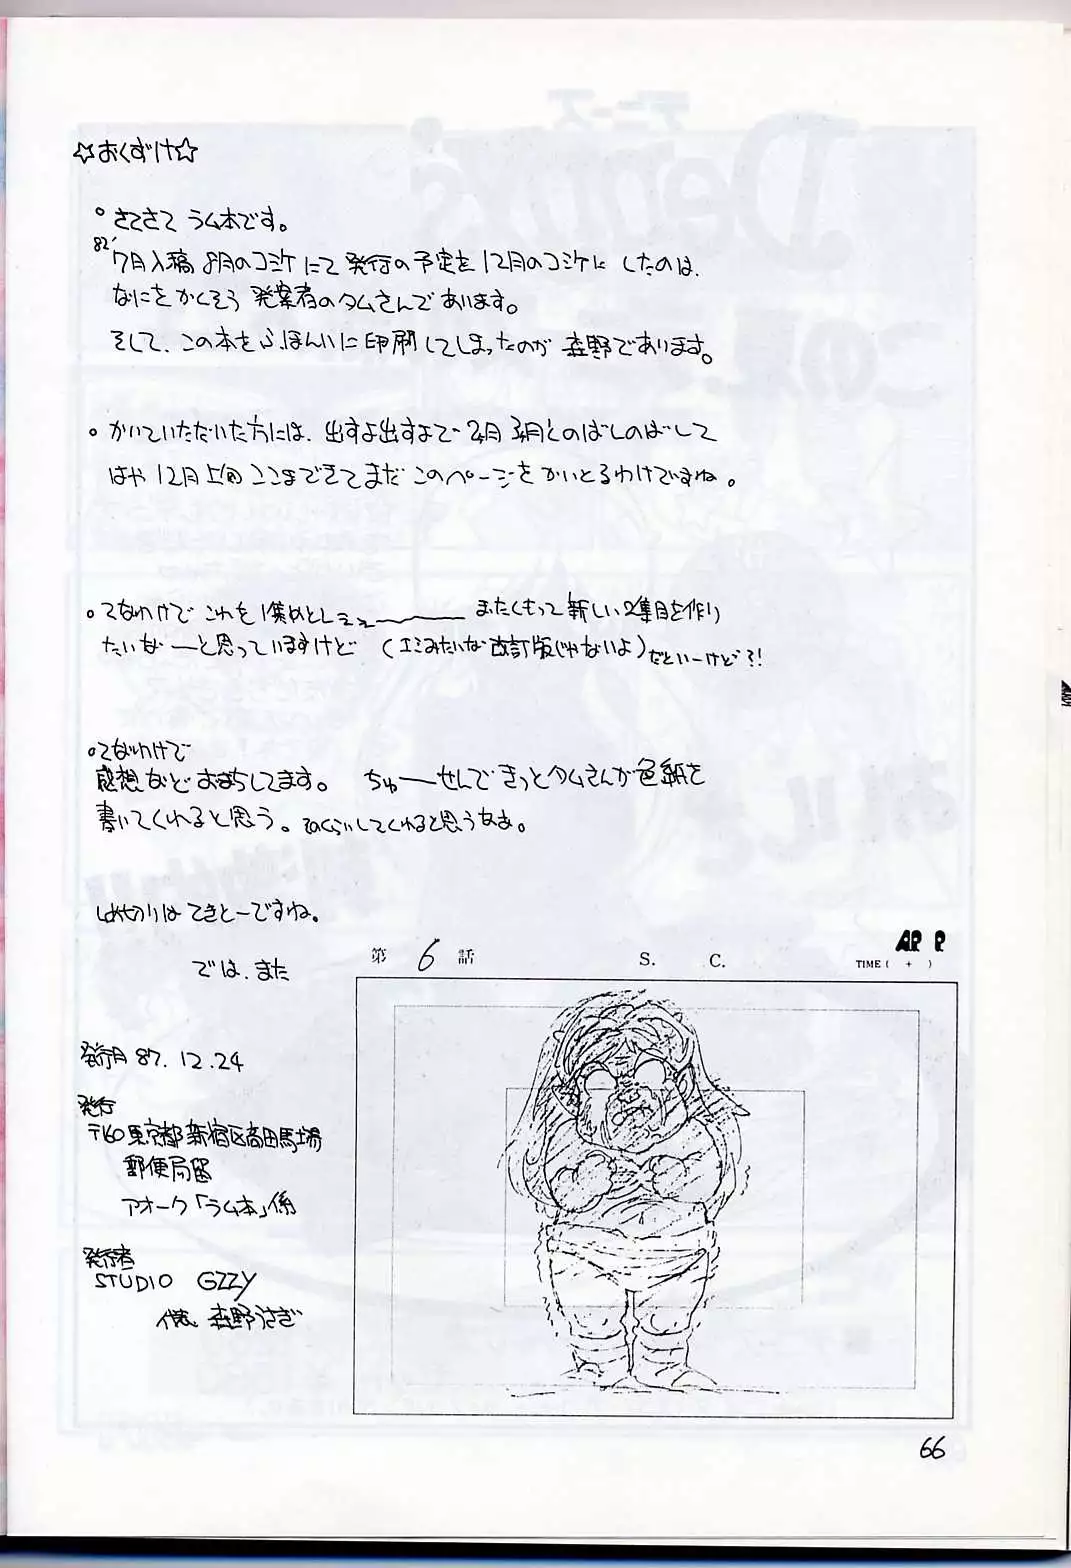 ☆おくずけ☆
。さてさて ラム本です。
82'
7月入稿 8月のコミケにて 発行の予定を 12月のコミケに したのは、
なにをかくそう 発案者のタムさんであります。
そして、この本をふほんいに印刷してしまったのが 森野であります。
。かいていただいた方には、出すよ出すよで 2月 3月とのばしのばして
はや 12月上旬 ここまできてまだ このページを かいとるわけですね。
。てなわけで これを 1集めとしぇぇーー またくもって 新しい2集目を作り
たいなーと思っていますけど (エミみたいな改訂版じゃないよ) だといーけど?!
。てなわけで
感想などおまちしてます。 ちゅーせんできっとタムさんが色紙を
書いてくれると思う。そのくらいしてくれると思うなあ。
しめ切りは てきとーですね。
では、また
第 6 話 S. C.
AP P
TIME ( + )
発行月 87. 12. 24
発行
〒160 東京都新宿区高田馬場
郵便局留
アオーク「ラム本」係
発行者
STUDIO GZZY
代表 森野うさぎ
66